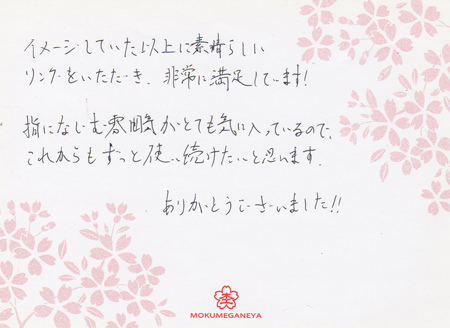 イメージしていた以上に素晴らしい
リングをいただき、非常に満足しています!
指になじむ雰囲気がとても気に入っているので、
これからもずっと使い続けたいと思います。
ありがとうございました!!
MOKUMEGANEYA